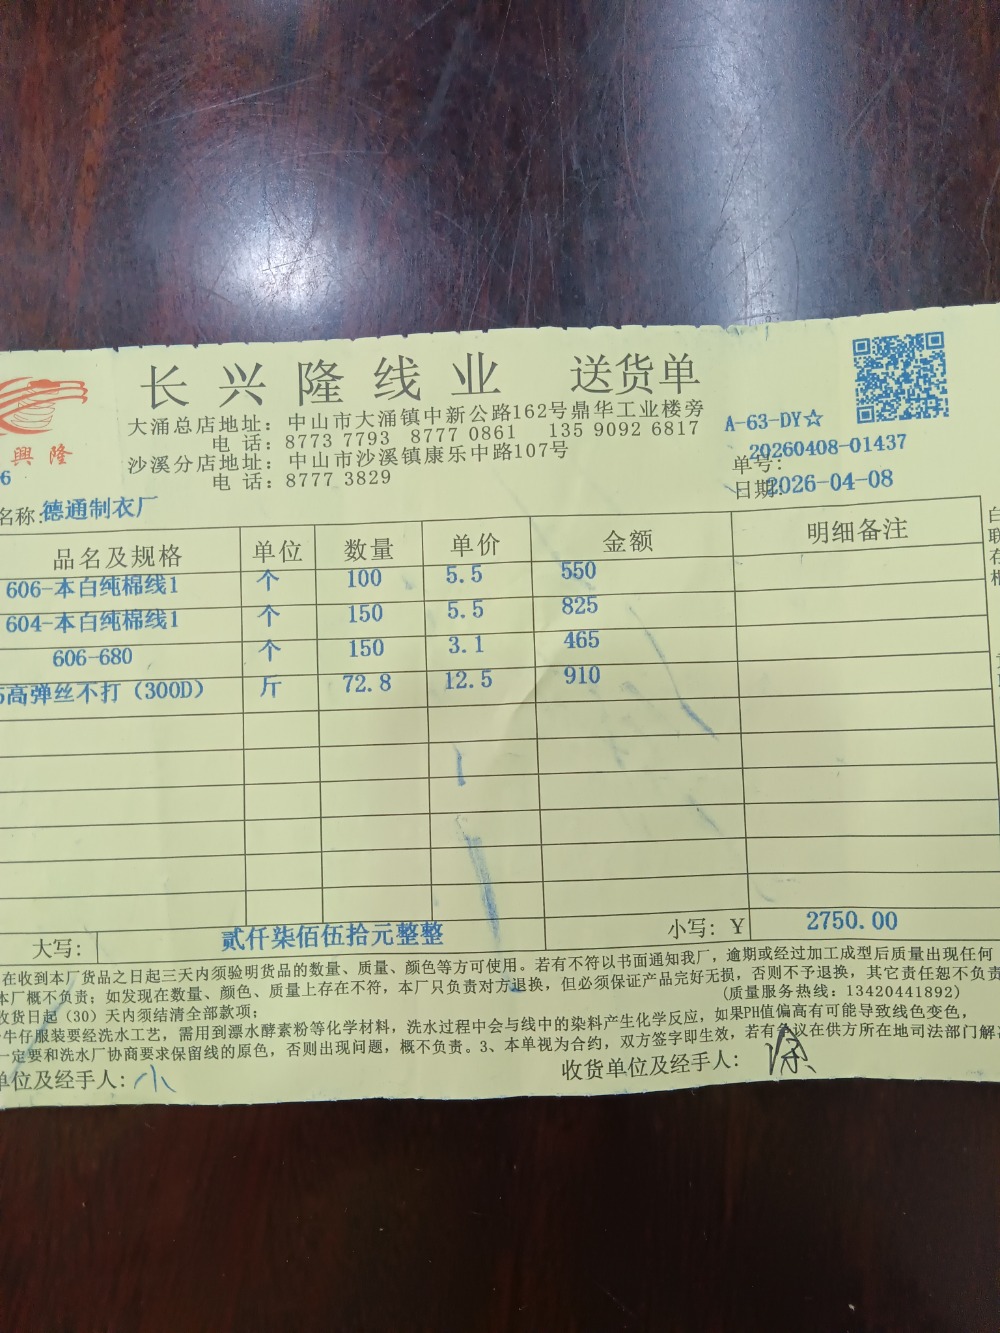 长兴隆线业 送货单
大涌总店地址：中山市大涌镇中新公路162号鼎华工业楼旁
电话：8773 7793 8777 0861 135 9092 6817
沙溪分店地址：中山市沙溪镇康乐中路107号
电话：8777 3829
興隆
6
A-63-DY☆
单号：20260408-01437
日期：2026-04-08
名称：德通制衣厂
品名及规格 单位 数量 单价 金额 明细备注
606-本白纯棉线1 个 100 5.5 550
604-本白纯棉线1 个 150 5.5 825
606-680 个 150 3.1 465
高弹丝不打（300D） 斤 72.8 12.5 910
大写： 贰仟柒佰伍拾元整整 小写：￥ 2750.00
在收到本厂货品之日起三天内须验明货品的数量、质量、颜色等方可使用。若有不符以书面通知我厂，逾期或经过加工成型后质量出现任何
本厂概不负责；如发现在数量、颜色、质量上存在不符，本厂只负责对方退换，但必须保证产品完好无损，否则不予退换，其它责任恕不负责
收货日起（30）天内须结清全部款项；
（质量服务热线：13420441892）
牛仔服装要经洗水工艺，需用到漂水酵素粉等化学材料，洗水过程中会与线中的染料产生化学反应，如果PH值偏高有可能导致线色变色，
一定要和洗水厂协商要求保留线的原色，否则出现问题，概不负责。3、本单视为合约，双方签字即生效，若有争议在供方所在地司法部门解决
单位及经手人：小
收货单位及经手人：